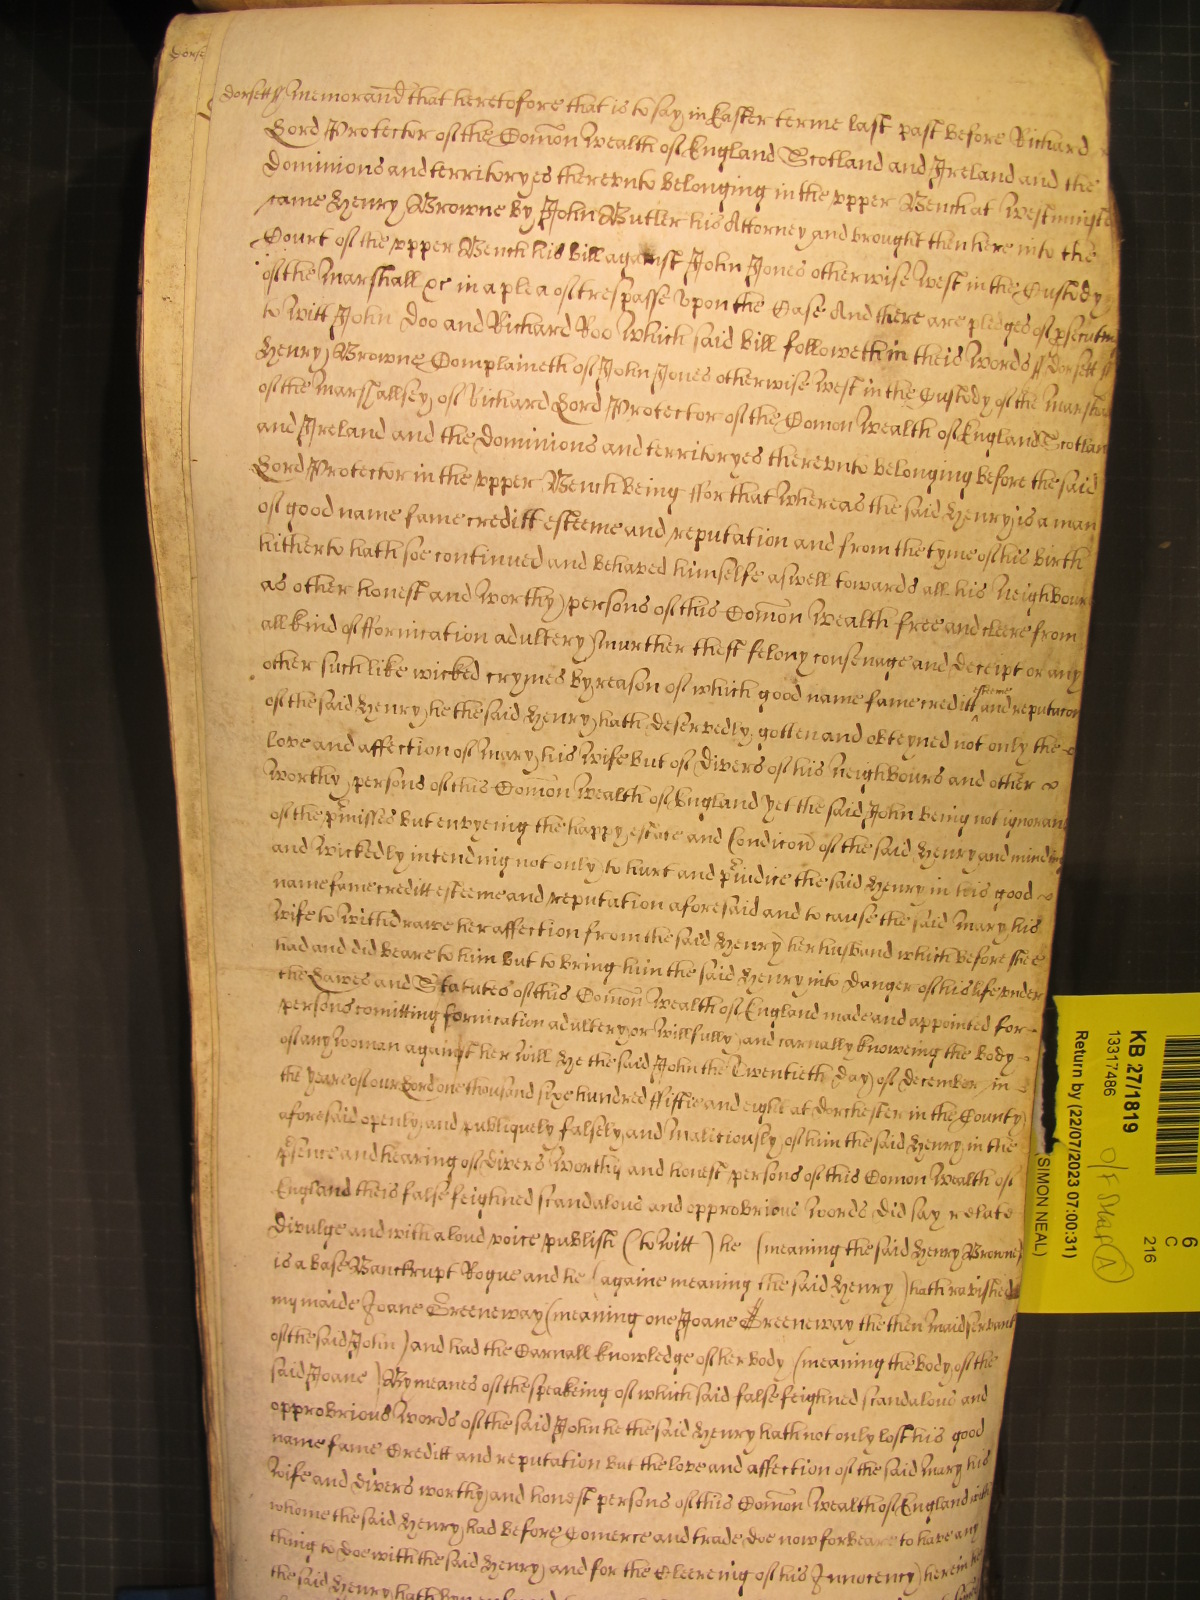 Dorse
Dorsett ss Memorand that heretofore that is to say in Easter terme last past before Richard
Lord Protector of the Com̄on Wealth of England Scotland and Ireland and the
Dominions and territoryes therevnto belonging in the vpper Bench at Westminste
came Henry Browne by John Butler his Attorney and brought then here into the
Court of the vpper Bench his bill against John Jones otherwise West in the Custody
of the Marshall &c in a plea of trespasse vpon the Case And there are pledges of psecuting
to Witt John Doo and Richard Roo Which said bill followeth in theis Words ss Dorsett ss
Henry Browne Complaineth of John Jones otherwise West in the Custody of the Marshal
of the Marshallsey of Richard Lord Protector of the Comon Wealth of England Scotlan
and Ireland and the Dominions and territoryes therevnto belonging before the said
Lord Protector in the vpper Bench being ffor that Whereas the said Henry is a man
of good name fame creditt esteeme and reputation and from the tyme of his birth
hitherto hath soe continued and behaved himselfe aswell towards all his Neighbour
as other honest and worthy persons of this Com̄on Wealth free and cleere from
all kind of ffornication adultery Murther theft felony consenage and deceipt or any
other such like wicked crymes By reason of which good name fame creditt ^esteeme^ and reputacon
of the said Henry he the said Henry hath deservedly gotten and obteyned not only the
love and affection of Mary his Wife but of divers of his Neighbours and other
Worthy persons of this Com̄on Wealth of England Yet the said John being not ignoran
of the pmisses but envyeing the happy estate and Condicon of the said Henry and minding
and Wickedly intending not only to hurt and piudice the said Henry in his good
name fame creditt esteeme and reputation aforesaid and to cause the said Mary his
Wife to Withdrawe her affection from the said Henry her husband which before shee
had and did beare to him but to bring him the said Henry into danger of his life vnder
the Lawes and Statutes of this Com̄on Wealth of England made and appointed for
persons comitting fornication adultery or Willfully and carnally knoweing the body
of any woman against her Will He the said John the Twentieth day of December in
the yeare of our Lord one thousand sixe hundred ffiftie and eight at Dorchester in the County
aforesaid openly and publiquely falsely and Maliciously of him the said Henry in the
psence and hearing of divers Worthy and honest persons of this Comon Wealth of
England theis false feighned scandalous and opprobrious Words did say relate
divulge and with a loud voice publish (to Witt) he (meaning the said Henry Browne)
is a base Banckrupt Rogue and he (againe meaning the said Henry) hath ravished
my maide Joane Greeneway (meaning one Joane Greeneway the then Maidservant
of the said John) and had the Carnall knowledge of her body (meaning the body of the
said Joane) By meanes of the speakeing of which said false feighned scandalous and
opprobrious Words of the said John he the said Henry hath not only lost his good
name fame Creditt and reputation but the love and affection of the said Mary his
Wife and divers worthy and honest persons of this Com̄on Wealth of England with
whome the said Henry had before Comerce and trade doe now forbeare to have any
thing to doe with the said Henry and for the Cleereing of his Innocency herein he
the said Henry hath
KB 27/1819
13317486
Return by (22/07/2023 07:00:31)
(SIMON NEAL)
6
C
216